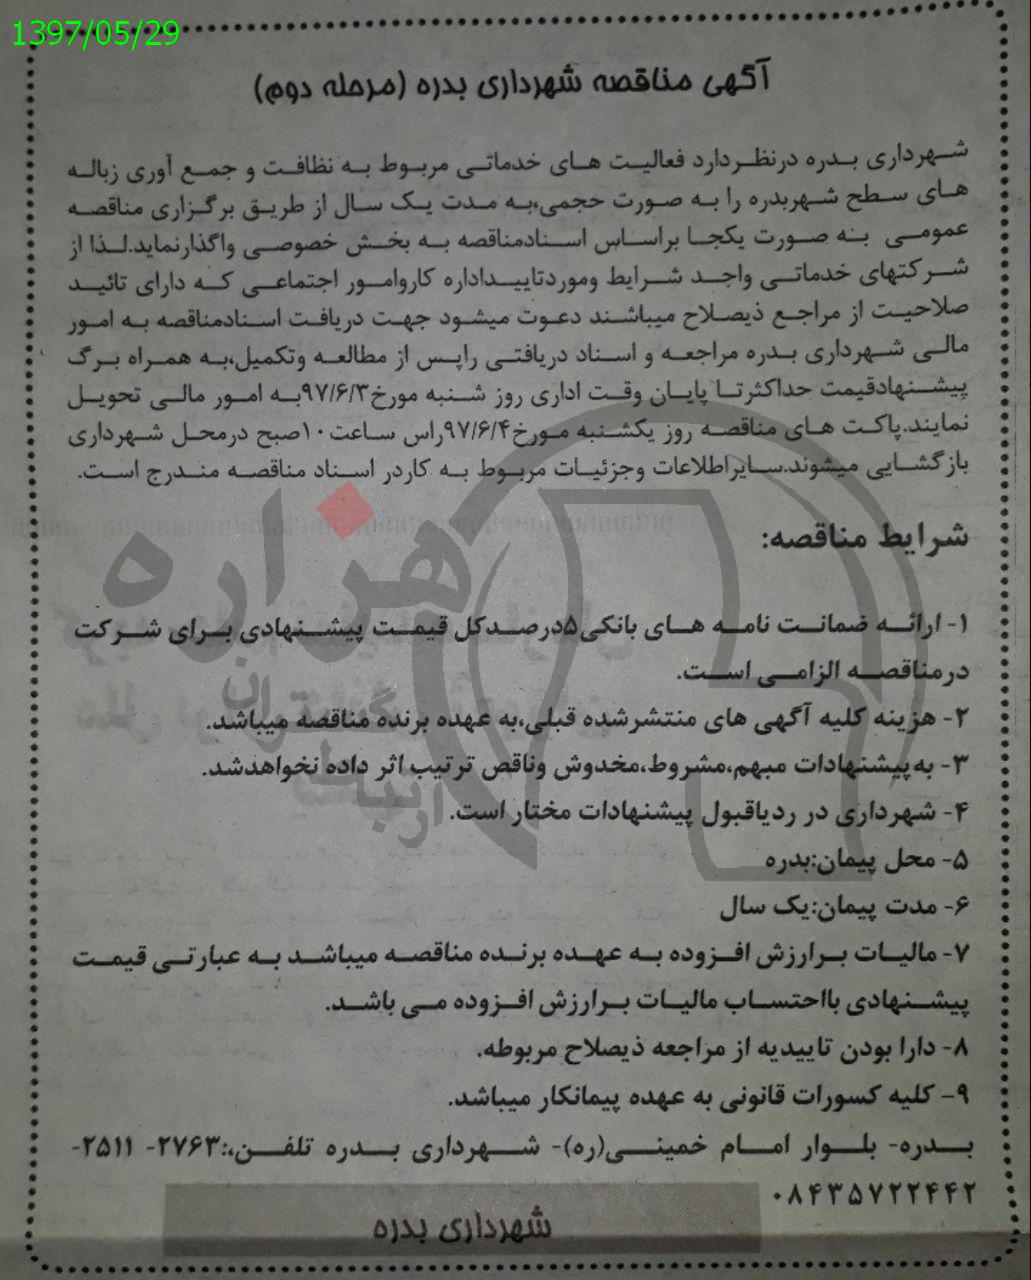 1397/05/29
آگهی مناقصه شهرداری بدره (مرحله دوم)
شهرداری بدره درنظردارد فعالیت های خدماتی مربوط به نظافت و جمع آوری زباله
های سطح شهربدره را به صورت حجمی،به مدت یک سال از طریق برگزاری مناقصه
عمومی به صورت یکجا براساس اسنادمناقصه به بخش خصوصی واگذارنماید.لذا از
شرکتهای خدماتی واجد شرایط وموردتاییداداره کاروامور اجتماعی که دارای تائید
صلاحیت از مراجع ذیصلاح میباشند دعوت میشود جهت دریافت اسنادمناقصه به امور
مالی شهرداری بدره مراجعه و اسناد دریافتی راپس از مطالعه وتکمیل،به همراه برگ
پیشنهادقیمت حداکثرتا پایان وقت اداری روز شنبه مورخ۹۷/۶/۳به امور مالی تحویل
نمایند.پاکت های مناقصه روز یکشنبه مورخ۹۷/۶/۴راس ساعت۱۰صبح درمحل شهرداری
بازگشایی میشوند.سایراطلاعات وجزئیات مربوط به کاردر اسناد مناقصه مندرج است.
شرایط مناقصه:
۱- ارائه ضمانت نامه های بانکی۵درصدکل قیمت پیشنهادی برای شرکت
درمناقصه الزامی است.
۲- هزینه کلیه آگهی های منتشرشده قبلی،به عهده برنده مناقصه میباشد.
۳- به‌پیشنهادات مبهم،مشروط،مخدوش وناقص ترتیب اثر داده نخواهدشد.
۴- شهرداری در ردیاقبول پیشنهادات مختار است.
۵- محل پیمان:بدره
۶- مدت پیمان:یک سال
۷- مالیات برارزش افزوده به عهده برنده مناقصه میباشد به عبارتی قیمت
پیشنهادی بااحتساب مالیات برارزش افزوده می باشد.
۸- دارا بودن تاییدیه از مراجعه ذیصلاح مربوطه.
۹- کلیه کسورات قانونی به عهده پیمانکار میباشد.
بدره- بلوار امام خمینی(ره)- شهرداری بدره تلفن،:۲۷۶۳- ۲۵۱۱-
۰۸۴۳۵۷۲۲۴۴۲
شهرداری بدره
هزاره